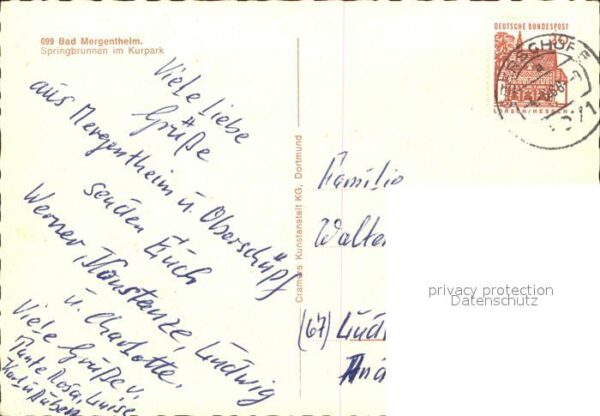 699 Bad Mergentheim.
Springbrunnen im Kurpark
Viele liebe
Grüße
aus Mergentheim u. Oberschüpf
senden Euch
Werner, Konstanze, Ludwig
u. Charlotte.
Viele Grüße v.
Tante Rosa, Luise
Cramers Kunstanstalt KG, Dortmund
DEUTSCHE BUNDESPOST
LORSCH/HESSEN
Familie
Walter
(67) Lud
privacy protection
Datenschutz